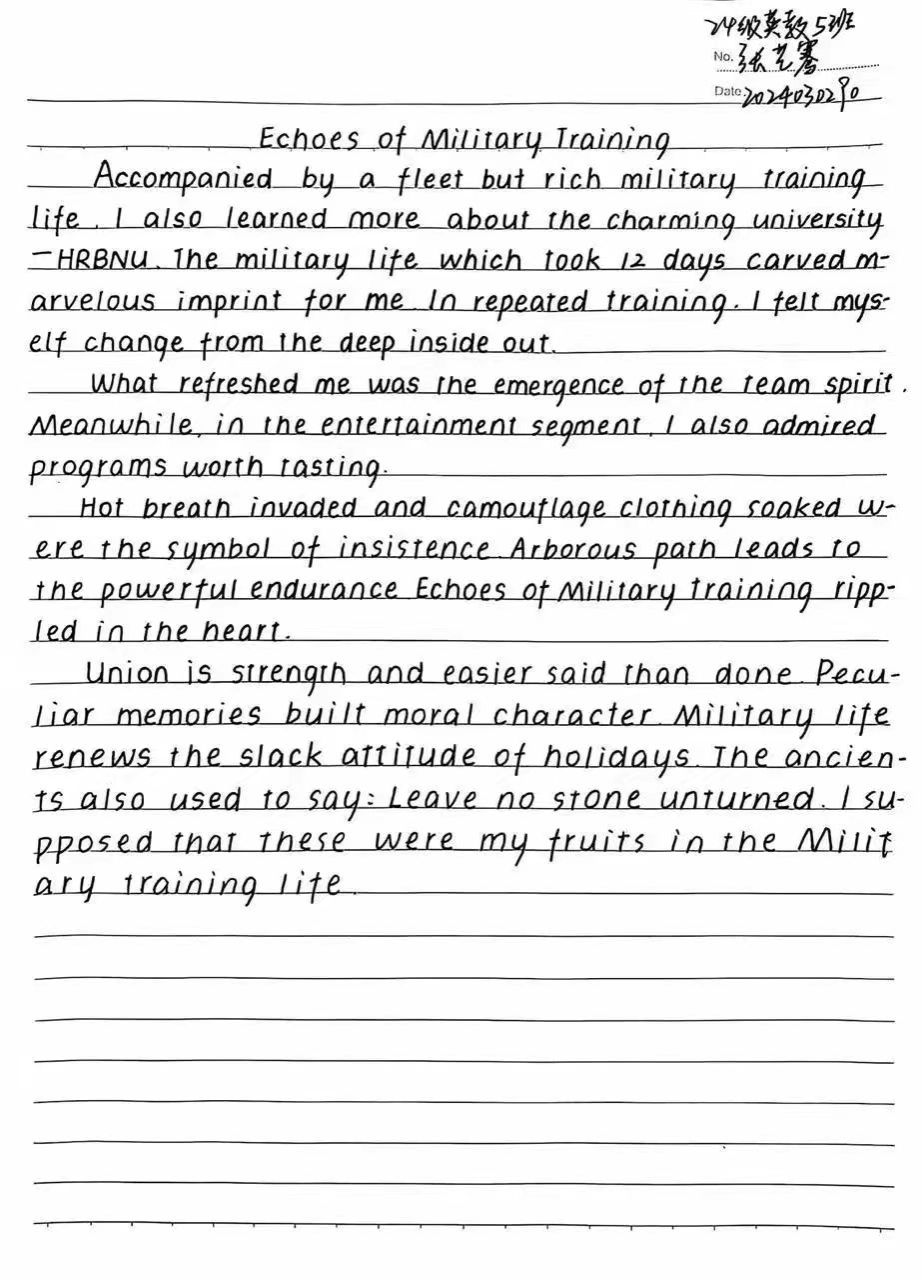 24级英教5班
No. 张艺骞
Date 2024030290
Echoes of Military Training
Accompanied by a fleet but rich military training
life, I also learned more about the charming university
—HRBNU. The military life which took 12 days carved m-
arvelous imprint for me. In repeated training. I felt mys-
elf change from the deep inside out.
What refreshed me was the emergence of the team spirit.
Meanwhile, in the entertainment segment, I also admired
programs worth tasting.
Hot breath invaded and camouflage clothing soaked w-
ere the symbol of insistence. Arborous path leads to
the powerful endurance. Echoes of Military training ripp-
led in the heart.
Union is strength and easier said than done. Pecu-
liar memories built moral character. Military life
renews the slack attitude of holidays. The ancien-
ts also used to say: Leave no stone unturned. I su-
pposed that these were my fruits in the Milit
ary training life.